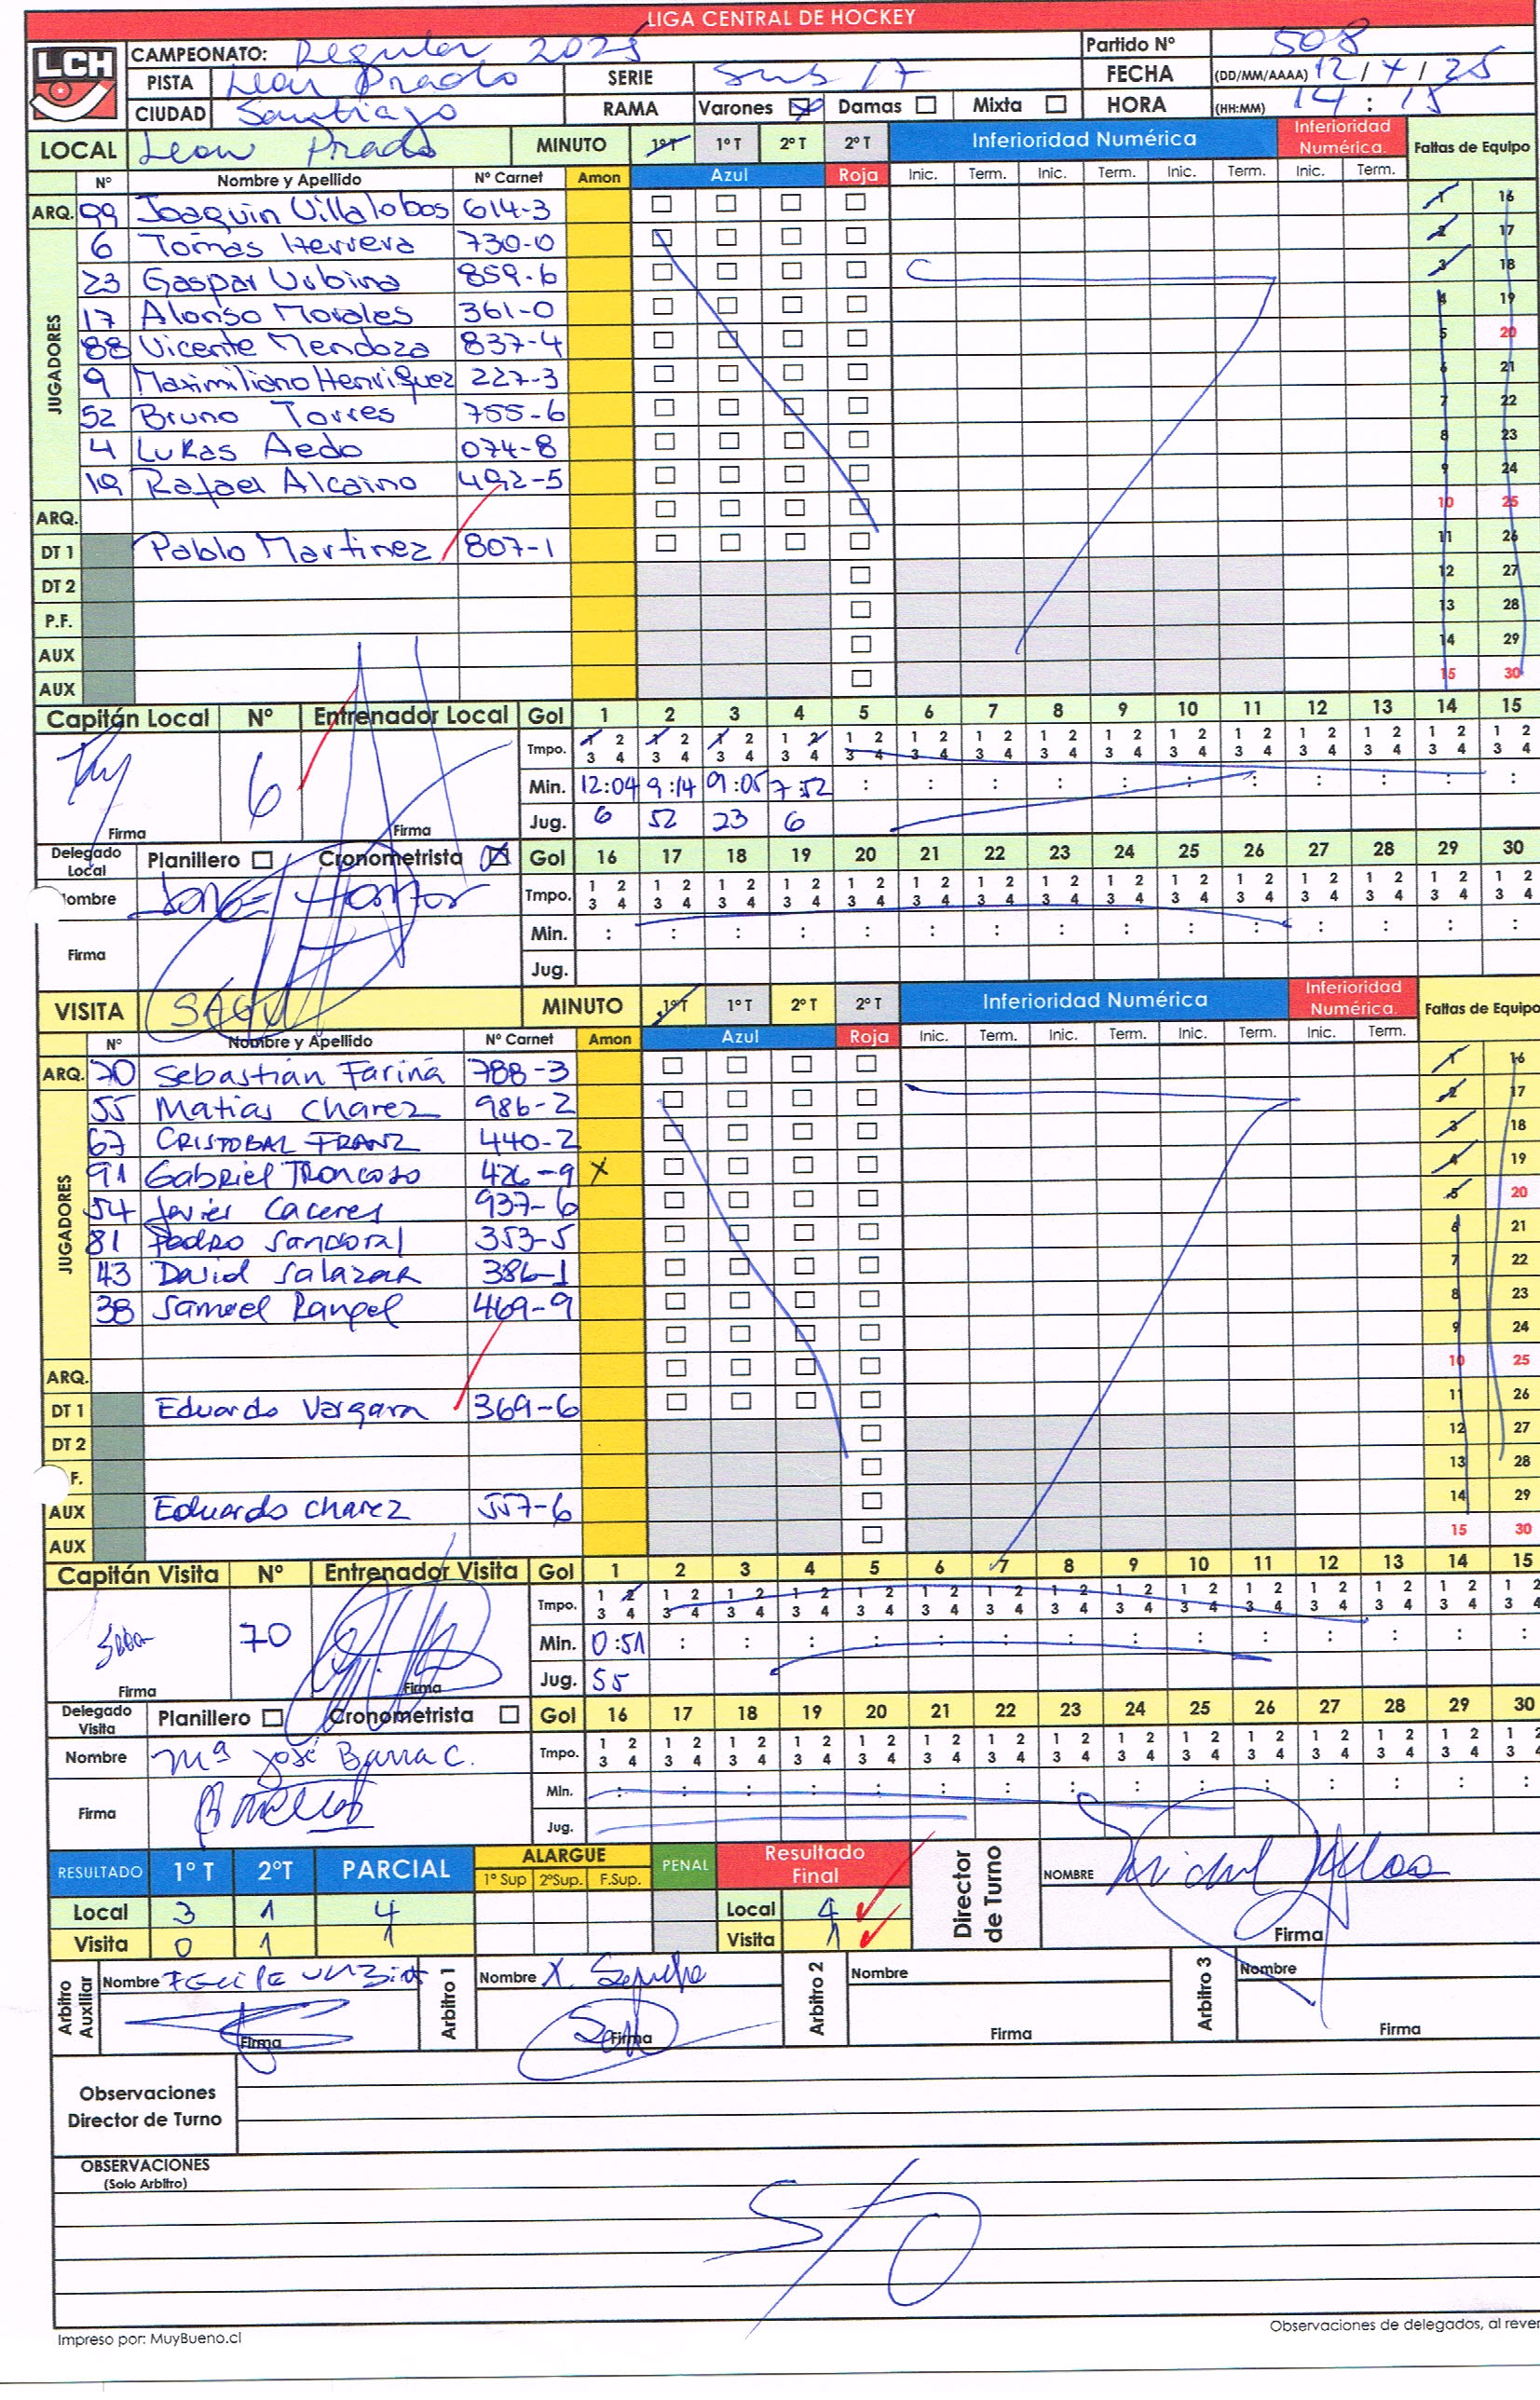 LIGA CENTRAL DE HOCKEY
LCH CAMPEONATO: Regular 2025 Partido Nº 508
PISTA Leon Prado SERIE Sub 17 FECHA (DD/MM/AAAA) 12 / 4 / 25
CIUDAD Santiago RAMA Varones Damas Mixta HORA (HH:MM) 14 : 15
LOCAL Leon Prado MINUTO 1º T 1º T 2º T 2º T Inferioridad Numérica Inferioridad Numérica. Faltas de Equipo
Nº Nombre y Apellido Nº Carnet Amon Azul Roja Inic. Term. Inic. Term. Inic. Term. Inic. Term.
ARQ. 99 Joaquin Villalobos 614-3 1 16
JUGADORES
6 Tomas Herrera 730-0 2 17
23 Gaspar Urbina 859-6 3 18
17 Alonso Morales 361-0 4 19
88 Vicente Mendoza 837-4 5 20
9 Maximiliano Henriquez 227-3 6 21
52 Bruno Torres 755-6 7 22
4 Lukas Aedo 074-8 8 23
19 Rafael Alcaino 492-5 9 24
ARQ. 10 25
DT 1 Pablo Martinez 807-1 11 26
DT 2 12 27
P.F. 13 28
AUX 14 29
AUX 15 30
Capitán Local Nº Entrenador Local Gol 1 2 3 4 5 6 7 8 9 10 11 12 13 14 15
Tmpo. 1 2 3 4 1 2 3 4 1 2 3 4 1 2 3 4 1 2 3 4 1 2 3 4 1 2 3 4 1 2 3 4 1 2 3 4 1 2 3 4 1 2 3 4 1 2 3 4 1 2 3 4 1 2 3 4 1 2 3 4
6 Min. 12:04 9:14 9:05 7:52 : : : : : : : : : : :
Firma Firma Jug. 6 52 23 6
Delegado Local Planillero Cronometrista Gol 16 17 18 19 20 21 22 23 24 25 26 27 28 29 30
ombre Tmpo. 1 2 3 4 1 2 3 4 1 2 3 4 1 2 3 4 1 2 3 4 1 2 3 4 1 2 3 4 1 2 3 4 1 2 3 4 1 2 3 4 1 2 3 4 1 2 3 4 1 2 3 4 1 2 3 4 1 2 3 4
Firma Min. : : : : : : : : : : : : : : :
Jug.
VISITA MINUTO 1º T 1º T 2º T 2º T Inferioridad Numérica Inferioridad Numérica. Faltas de Equipo
Nº Nombre y Apellido Nº Carnet Amon Azul Roja Inic. Term. Inic. Term. Inic. Term. Inic. Term.
ARQ. 70 Sebastián Fariña 788-3 1 16
JUGADORES
55 Matias Chavez 986-2 2 17
67 CRISTOBAL FRANZ 440-2 3 18
91 Gabriel Troncoso 426-9 X 4 19
54 Javier Caceres 937-6 5 20
81 Pedro Sandoval 353-5 6 21
43 David Salazar 386-1 7 22
38 Samuel Rangel 469-9 8 23
9 24
ARQ. 10 25
DT 1 Eduardo Vargara 369-6 11 26
DT 2 12 27
F. 13 28
AUX Eduardo Chavez 557-6 14 29
AUX 15 30
Capitán Visita Nº Entrenador Visita Gol 1 2 3 4 5 6 7 8 9 10 11 12 13 14 15
Tmpo. 1 2 3 4 1 2 3 4 1 2 3 4 1 2 3 4 1 2 3 4 1 2 3 4 1 2 3 4 1 2 3 4 1 2 3 4 1 2 3 4 1 2 3 4 1 2 3 4 1 2 3 4 1 2 3 4 1 2 3 4
70 Min. 0:51 : : : : : : : : : : : : : :
Firma Firma Jug. 55
Delegado Visita Planillero Cronometrista Gol 16 17 18 19 20 21 22 23 24 25 26 27 28 29 30
Nombre Mª José Barra C. Tmpo. 1 2 3 4 1 2 3 4 1 2 3 4 1 2 3 4 1 2 3 4 1 2 3 4 1 2 3 4 1 2 3 4 1 2 3 4 1 2 3 4 1 2 3 4 1 2 3 4 1 2 3 4 1 2 3 4 1 2 3 4
Firma Min. : : : : : : : : : : : : : : :
Jug.
RESULTADO 1º T 2ºT PARCIAL ALARGUE 1º Sup 2ºSup. F.Sup. PENAL Resultado Final Director de Turno NOMBRE
Local 3 1 4 Local 4
Visita 0 1 1 Visita 1 Firma
Arbitro Auxiliar Nombre Arbitro 1 Nombre Arbitro 2 Nombre Arbitro 3 Nombre
Firma Firma Firma Firma
Observaciones
Director de Turno
OBSERVACIONES
(Solo Arbitro)
S/O
Impreso por: MuyBueno.cl Observaciones de delegados, al rever